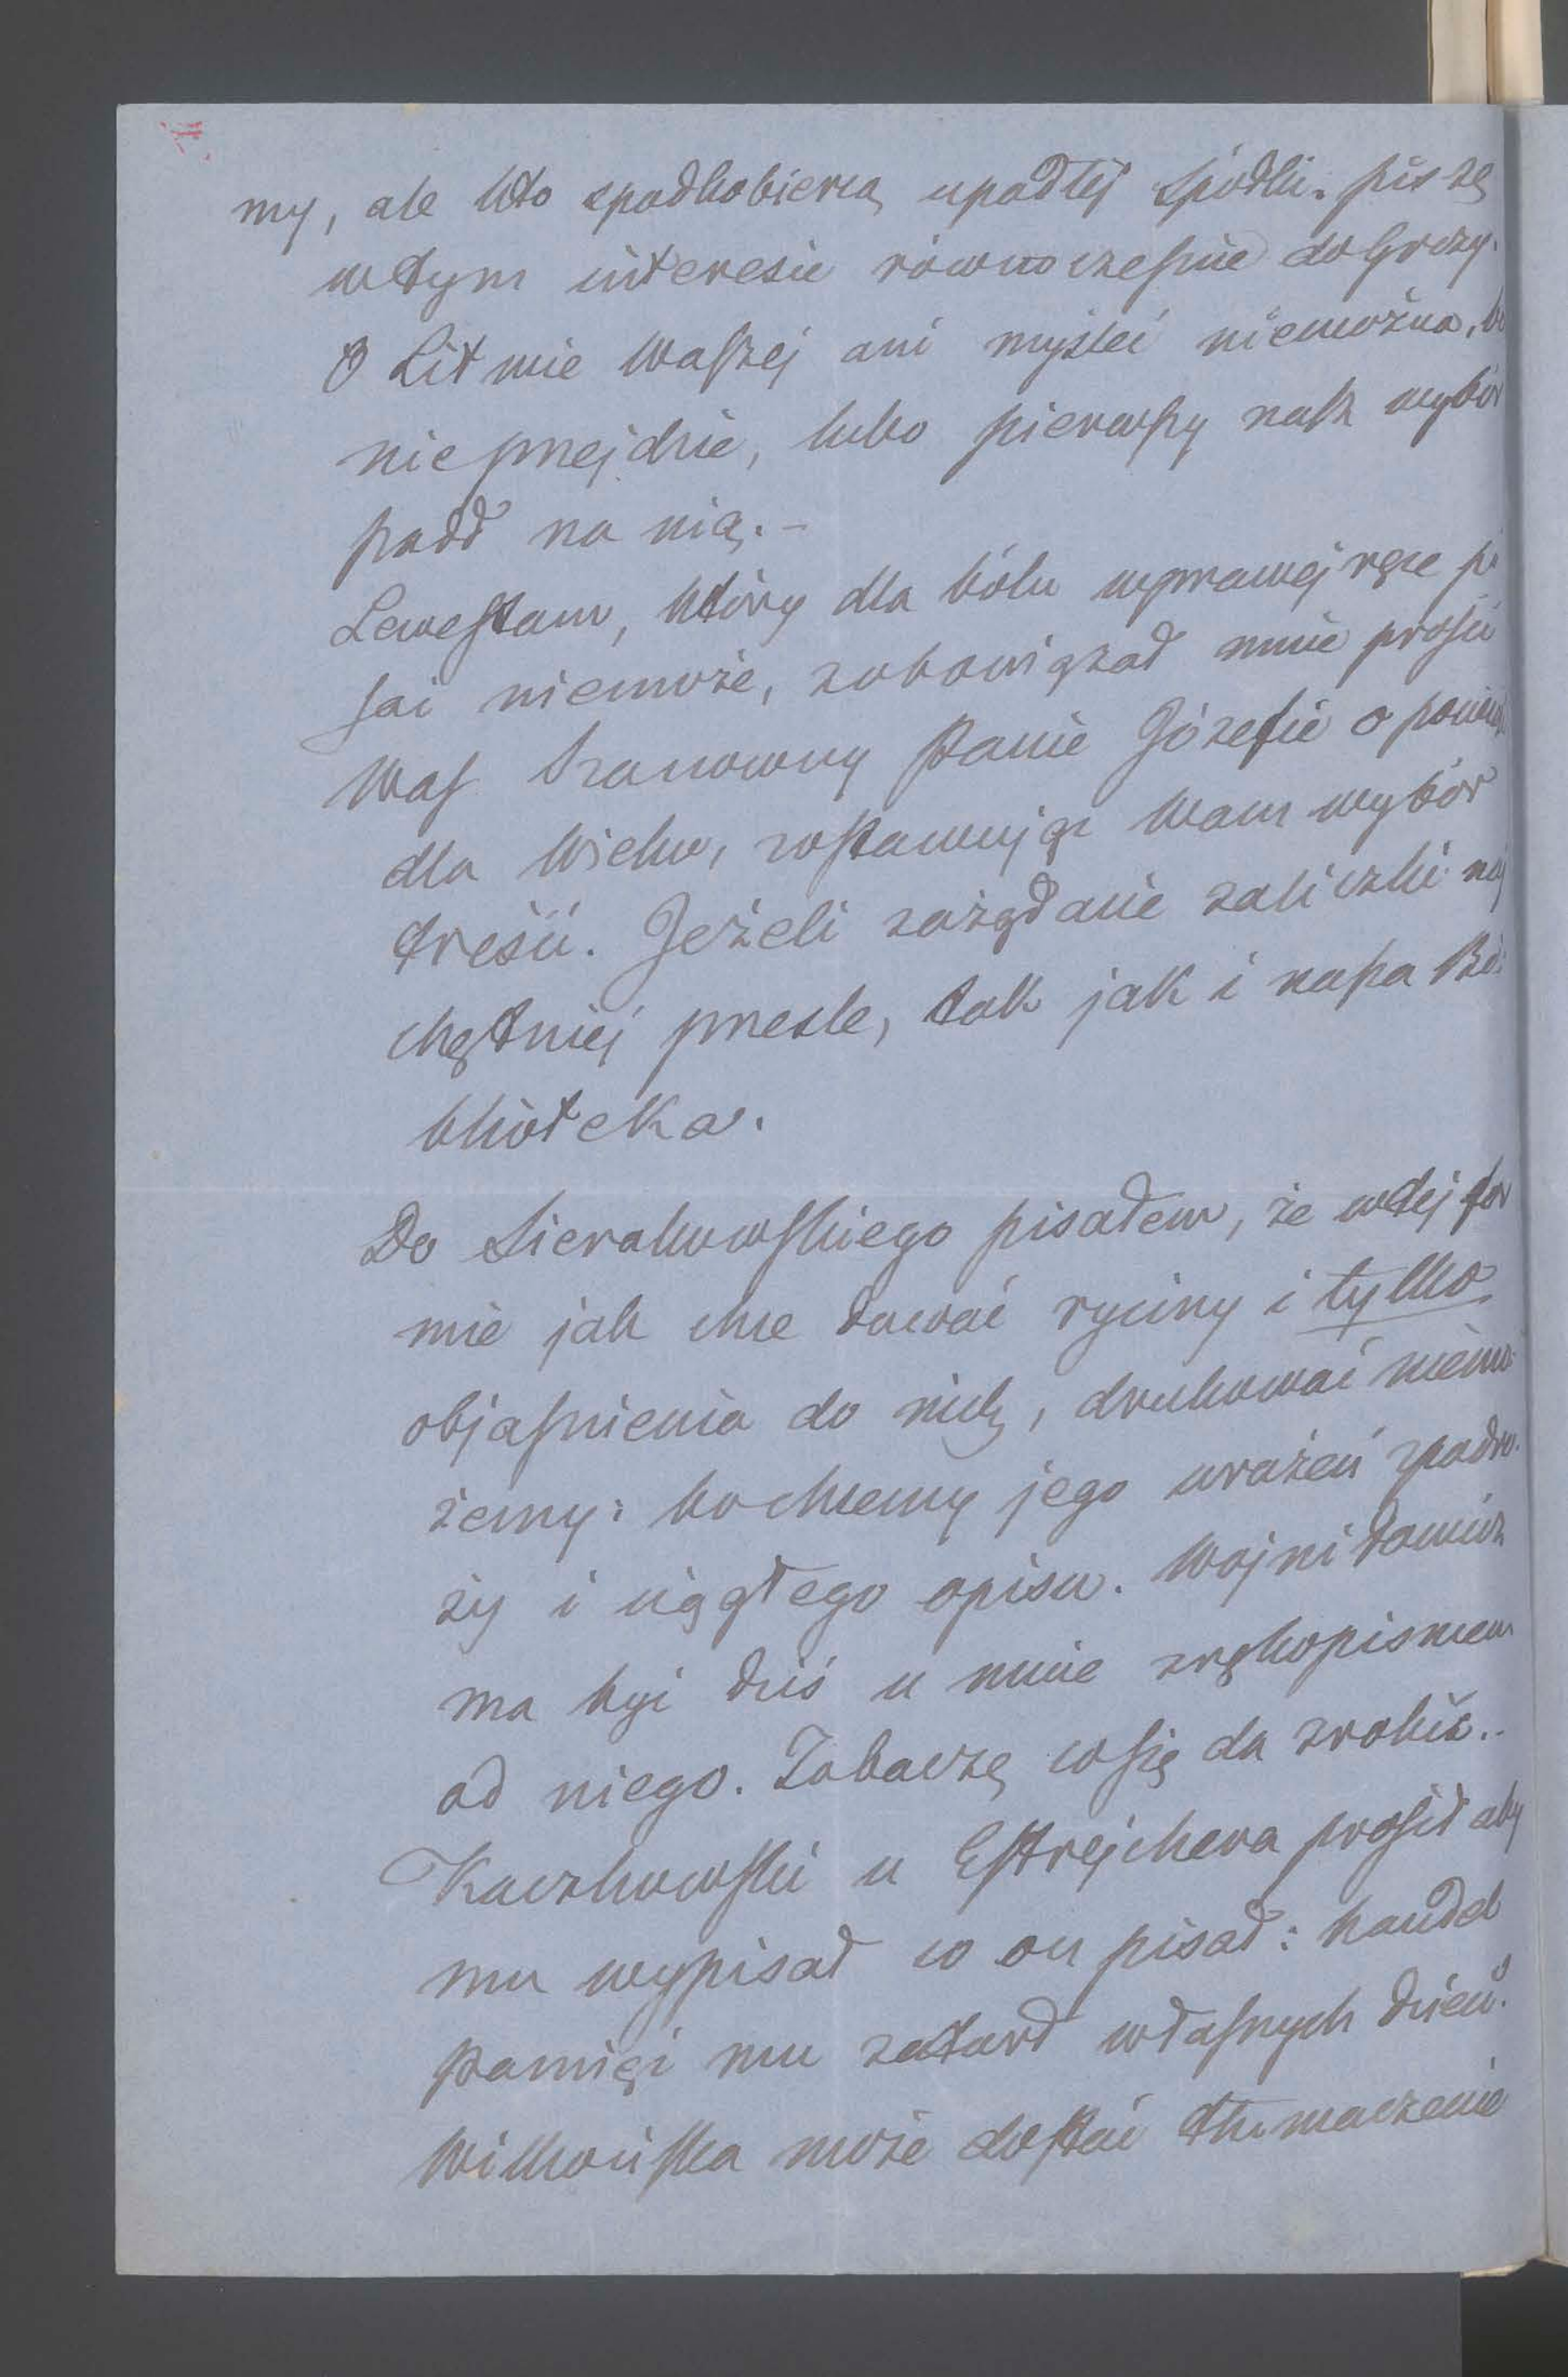 my, ale kto spadkobiercą upadłéj spółki. piszę
wtym interesie równocześnie do Grczy.
O Litwie Waszej ani myśleć niemożna, bo
nieprzejdzie, lubo pierwszy nasz wybór
padł na nią. –
Lewestam, który dla bólu wprawej ręce pi
sać niemoże, zobowiązał mnie prosić
Was Szanowny Panie Józefie o powieść
dla Wieku, zostawując Wam wybór
treści. Jeżeli zażądacie zaliczki naj
chętniej prześle, tak jak i nasza Bi-
blioteka.
Do Sierakowskiego pisałem, że wtej for
mie jak chce dawać ryciny i tylko
objaśnienia do nich, drukować niemo-
żemy: bo chcemy jego wrażeń zpodró-
ży i ciągłego opisu. Wojni Damicz
ma być dziś u mnie zrękopismem
od niego. Zobaczę co się da zrobić..
Kaczkowski u Estrejchera prosił aby
mu wypisał co on pisał: handel
pamięć mu zatarł własnych dzieł.
Wilkońska może dostać tłumaczenie